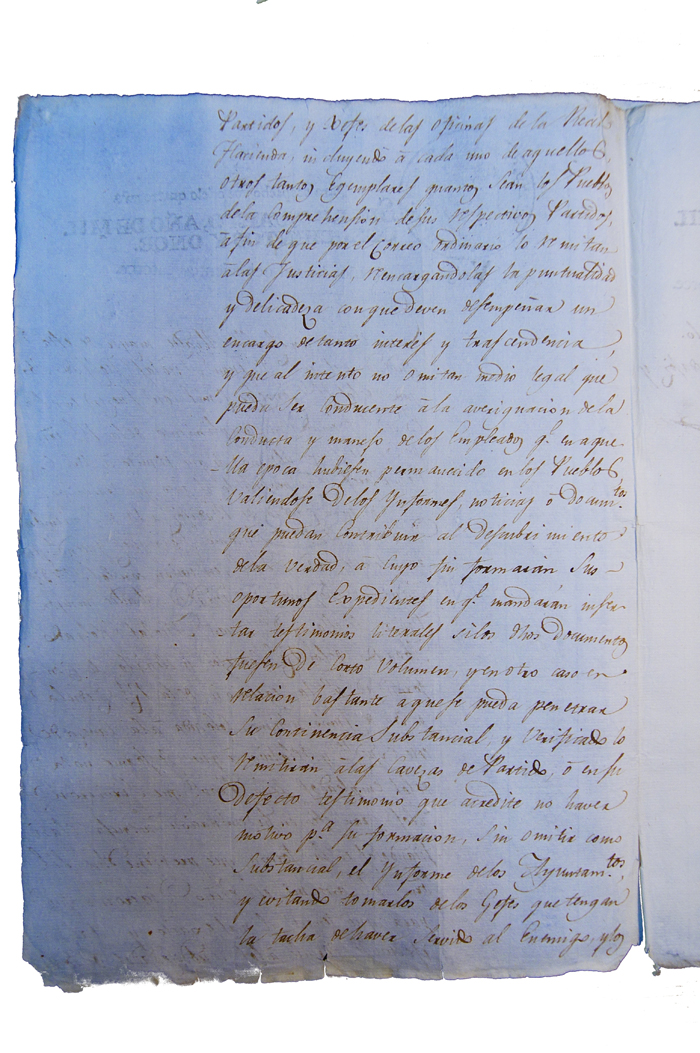 Partidos, y Xefes delas oficinas de la Real
Hacienda, incluyendo â cada uno de aquellos,
otros tantos Egemplares quantos sean los Pueblos
de la Comprehension de sus respectivos Partidos,
a fin de que por el Correo ordinario lo remitan
âlas Justicias, rencargandolas la puntualidad
y delicadeza con que deven desempeñar un
encargo de tanto interes y trascendencia,
y que al intento no omitan medio legal que
pueda ser Conducente â la averiguacion de la
Conducta y manejo de los Empleados q.e en aque-
lla epoca hubiesen permanecido en los Pueblos
Valiendose Delos Ynformes, noticias ô docum.tos
que puedan Contribuir al Descubrimiento
dela verdad, â cuyo fin formarán Sus
oportunos Expedientes en q.e mandarán inser-
tar testimonios literales silos dhos documentos
fuesen De Corto Volumen, y en otro caso en
relacion bastante aquese pueda penetrar
Su Continencia Substancial y Verificado lo
remitirán âlas Cavezas de Partido, ô en su
Defecto testimonio que acredite no haver
motivo p.a su formacion, Sin omitir como
Substancial, el Ynforme delos Ayuntam.tos
y evitando tomarlos delos Gefes que tengan
la tacha de haver Servido al Enemigo, y los